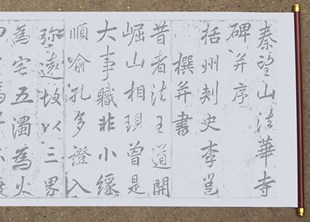 秦望山法華寺
碑并序
括州刾史李邕
撰并書
昔者法王道開
崛山相現曽是
大事職非小緣
順喻孔多證入
弥遠故以三界
為宅五濁為火